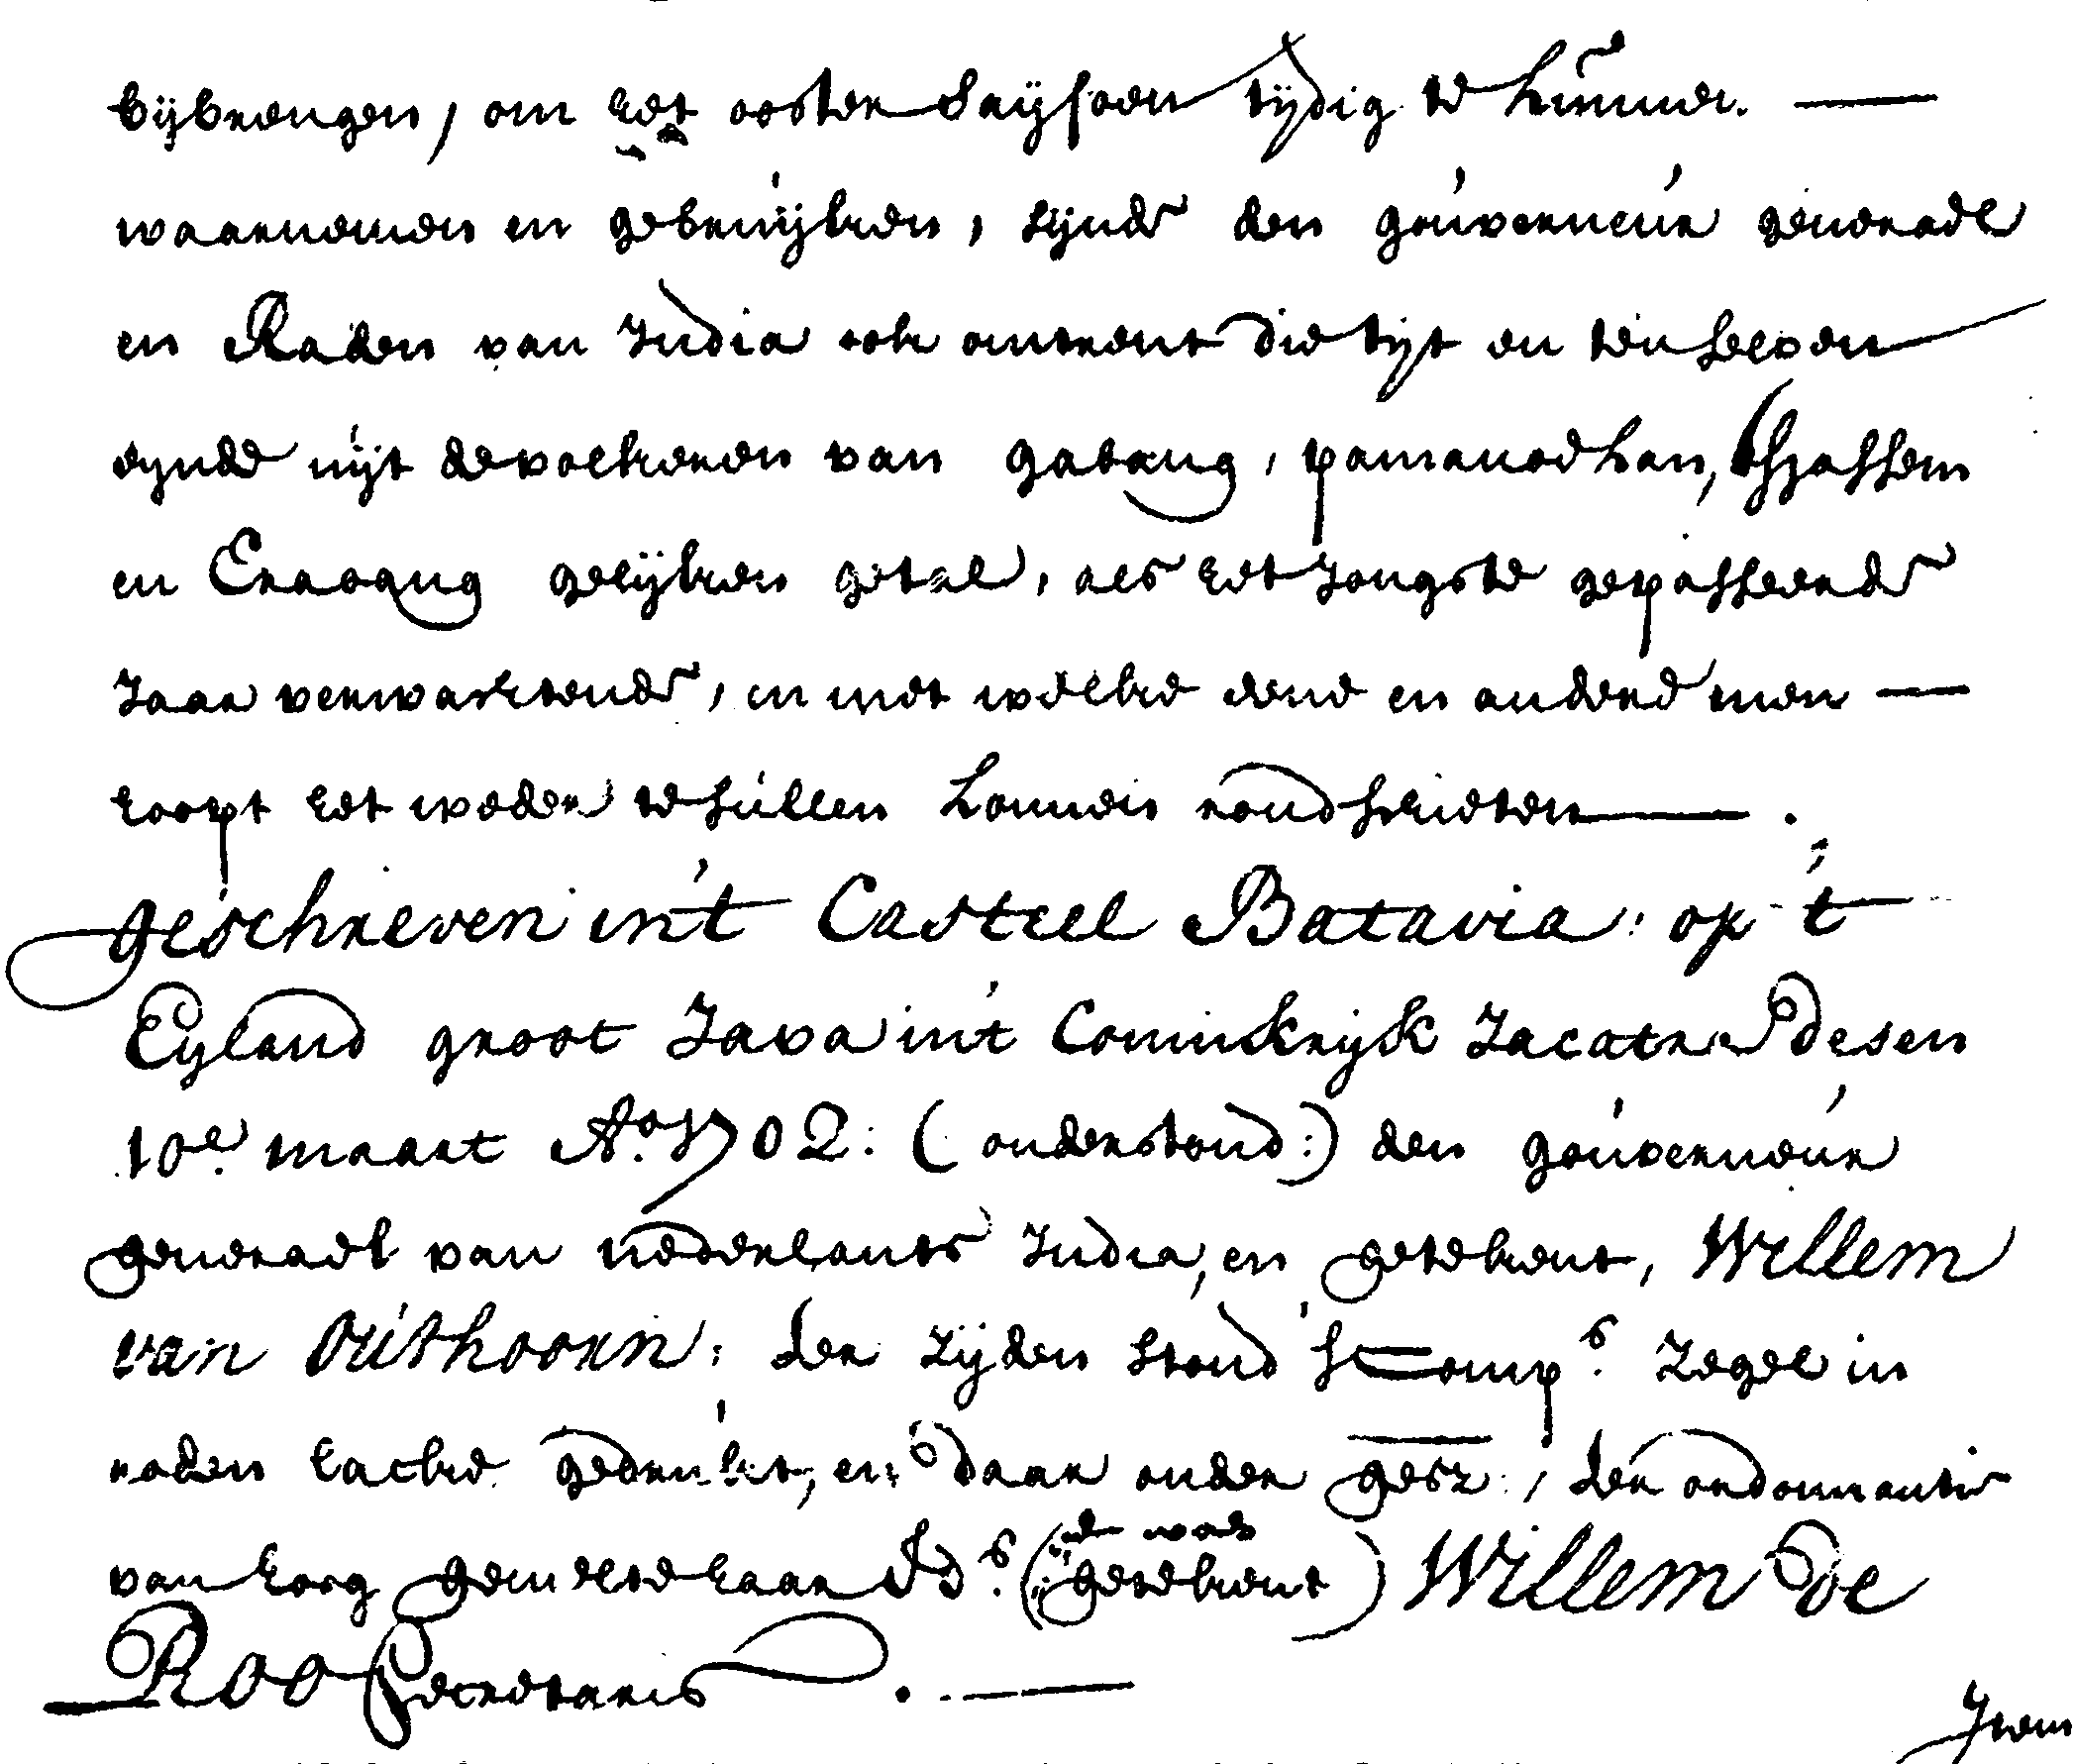 bijbrengen, om het ooster saijsoen tijdig te kunnen
waarnemen en gebruijken, sijnde den gouverneur generael
en Raden van India ook omtrent die tijt en ten selven
eijnde uijt de volkeren van gabang, pamanoekan, Tsjassem
en Crawang gelijken getal, als het Jongste gepasseerde
Jaar verwachtende, en met welke eene en andere men
hoopt het weder te sullen konnen rondschieten.
geschreven in 't Casteel Batavia: op 't
Eyland groot Java in't Coninkrijk Jacatra desen
10e. maart Ao. 1702: (onderstond:) den gouverneur
generael van nederlants India, en getekent, Willem
van Outhoorn: ter zijden stond 's Comps. Zegel in
roden lacke gedrukt, en daar onder gesz:, ter ordonnantie
van hoog gemelte haar Eds. (en was getekent) Willem de
Roo Secretaris.
Item